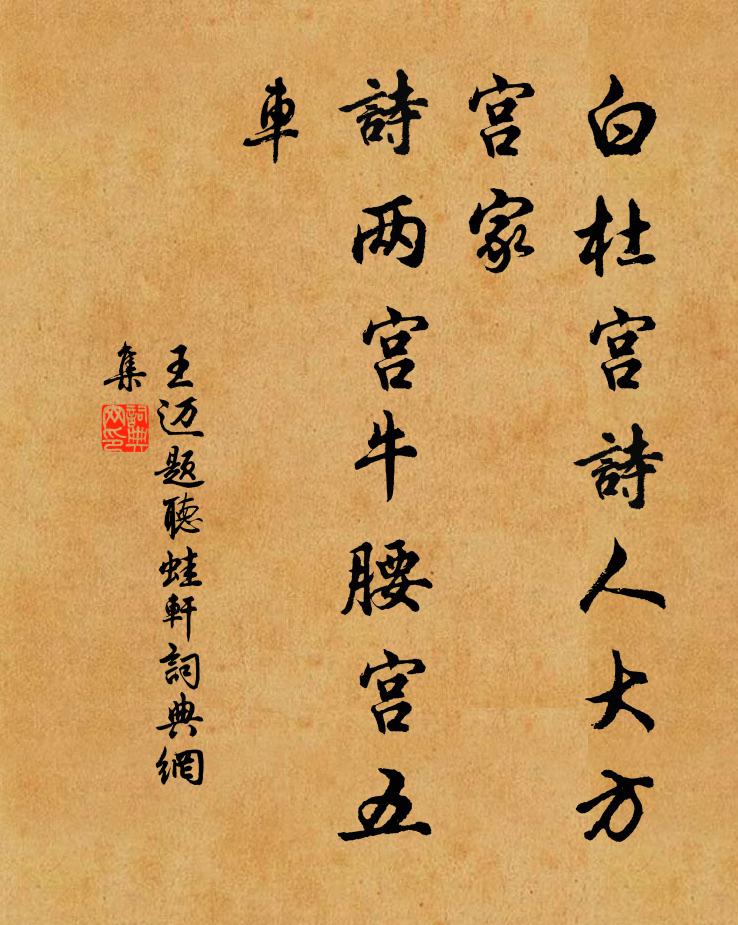 白杜宫詩人大方
宫家
詩两宫牛腰宫五
車
王迈题聽蛙軒詞典網
集
詞典網印